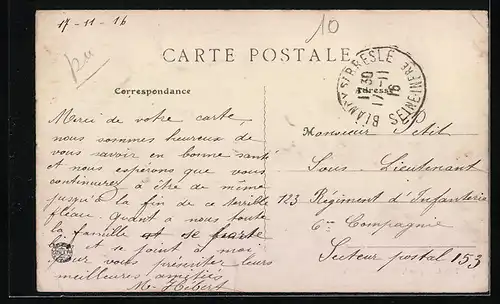 17-11-16
10
CARTE POSTALE
BLANGY S/ BRESLE
11 30
17-11
16
SEINE INFRE
Correspondance
Adresse
Merci de votre carte,
nous sommes heureux de
vous savoir en bonne santé
et nous espérons que vous
continuerez à être de même
jusqu'à la fin de ce terrible
fléau. Quant à nous toute
la famille est
et se joint à moi
pour vous présenter leurs
meilleures amitiés
M. Hébert
Monsieur Petit
Sous-Lieutenant
123 Régiment d'Infanterie
6e Compagnie
Secteur postal 153